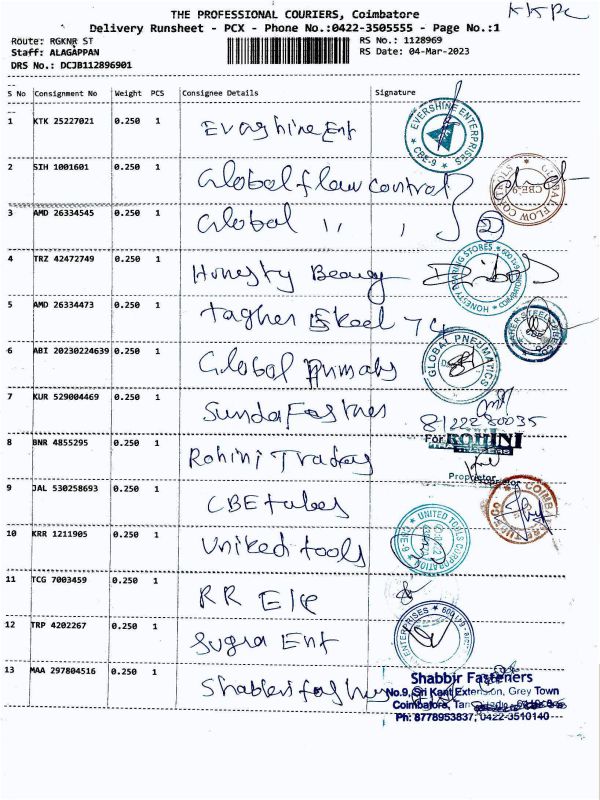 KKPC
THE PROFESSIONAL COURIERS, Coimbatore
Delivery Runsheet - PCX - Phone No.:0422-3505555 - Page No.:1
Route: RGKNR ST
RS No.: 1128969
Staff: ALAGAPPAN
RS Date: 04-Mar-2023
DRS No.: DCJB112896901
S No Consignment No Weight PCS Consignee Details Signature
1 KTK 25227021 0.250 1 Evashine Ent
EVERSHINE ENTERPRISES CBE-9
2 SIH 1001601 0.250 1 Global flow control
GLOBAL FLOW CONTROLS CBE
3 AMD 26334545 0.250 1 Global 〃 〃 2
4 TRZ 42472749 0.250 1 Honesty
HONESTY STORES
5 AMD 26334473 0.250 1 74
6 ABI 20230224639 0.250 1 Global
GLOBAL PNEUMATICS
7 KUR 529004469 0.250 1 Sunda
8122280035
8 BNR 4855295 0.250 1 Rohini
For ROHINI
Proprietor
9 JAL 530258693 0.250 1 CBE tubes
10 KRR 1211905 0.250 1 United tools
UNITED TOOLS CORPORATION
11 TCG 7003459 0.250 1 RR Ele
12 TRP 4202267 0.250 1 Sugra Ent
ENTERPRISES
13 MAA 297804516 0.250 1
Shabbir Fasteners
No.9, Sri Kant Extension, Grey Town
Coimbatore,
Ph: 8778953837, 0422-3510140